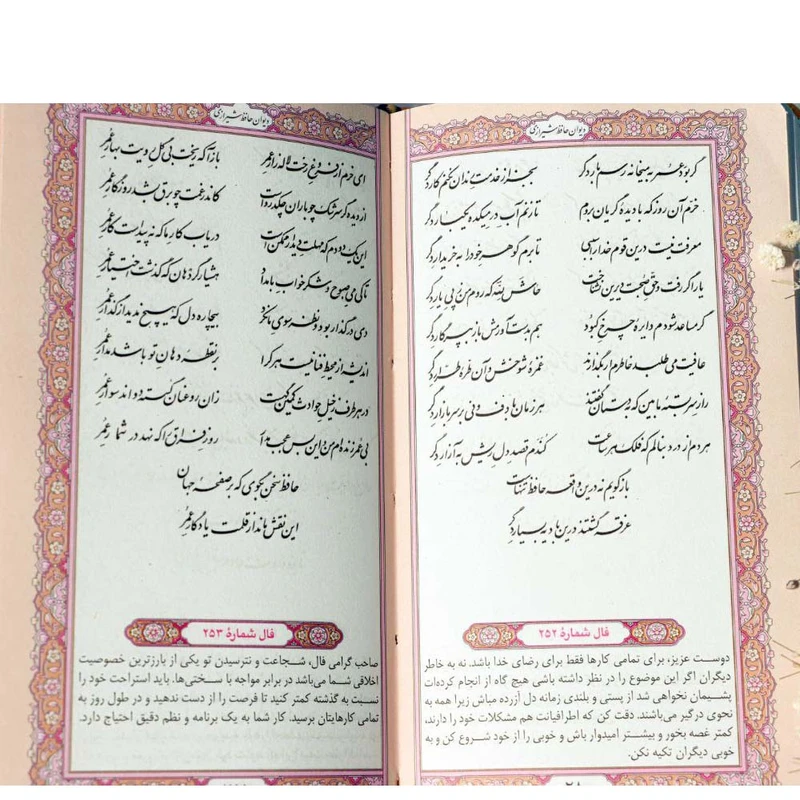 دیوان حافظ شیرازی
گر بود عمر به میخانه رسم بار دگر بجز از خدمت رندان نکنم کار دگر
خرم آن روز که با دیده گریان بروم تا زنم آب در میکده یکبار دگر
معرفت نیست درین قوم خدا را سببی تا برم گوهر خود را به خریدار دگر
یار اگر رفت و حق صحبت دیرین نشناخت حاش لله که روم من ز پی یار دگر
گر مساعد شودم دایرهٔ چرخ کبود هم بدست آورمش باز بپرگار دگر
عافیت می طلبد خاطرم ار بگذارند غمزهٔ شوخش و آن طرهٔ طرار دگر
راز سربستهٔ ما بین که به دستان گفتند هر زمان با دف و نی بر سر بازار دگر
هر دم از درد بنالم که فلک هر ساعت کندم قصد دل ریش به آزار دگر
بازگویم نه درین واقعه حافظ تنهاست
غرقه گشتند درین بادیه بسیار دگر
فال شمارهٔ ۲۵۲
دوست عزیز، برای تمامی کارها فقط برای رضای خدا باشد. نه به خاطر
دیگران اگر این موضوع را در نظر داشته باشی هیچ گاه از انجام کرده‌ات
پشیمان نخواهی شد از پستی و بلندی زمانه دل آزرده مباش زیرا همه به
نحوی درگیر می‌باشند. دقت کن که اطرافیانت هم مشکلات خود را دارند،
کمتر غصه بخور و بیشتر امیدوار باش و خوبی را از خود شروع کن و به
خوبی دیگران تکیه نکن.
دیوان حافظ شیرازی
ای خرم از فروغ رخت لاله زار عمر بازآ که ریخت بی گل رویت بهار عمر
از دیده گر سرشک چو باران چکد رواست کاندر غمت چو برق بشد روزگار عمر
این یک دو دم که مهلت دیدار ممکن است دریاب کار ما که نه پیداست کار عمر
تا کی می صبوح و شکر خواب بامداد هشیار گرد هان که گذشت اختیار عمر
دی در گذار بود و نظر سوی ما نکرد بیچاره دل که هیچ ندید از گذار عمر
اندیشه از محیط فنا نیست هر که را بر نقطهٔ دهان تو باشد مدار عمر
در هر طرف ز خیل حوادث کمین گهیست زان رو عنان گسسته دواند سوار عمر
بی عمر زنده ام من و این بس عجب مدار روز فراق را که نهد در شمار عمر
حافظ سخن بگوی که بر صفحهٔ جهان
این نقش ماند از قلمت یادگار عمر
فال شمارهٔ ۲۵۳
صاحب گرامی فال، شجاعت و نترسیدن تو یکی از بارزترین خصوصیت
اخلاقی شما می‌باشد در برابر مواجه با سختی‌ها. باید استراحت خود را
نسبت به گذشته کمتر کنید تا فرصت را از دست ندهید و در طول روز به
تمامی کارهایتان برسید. کار شما به یک برنامه و نظم دقیق احتیاج دارد.